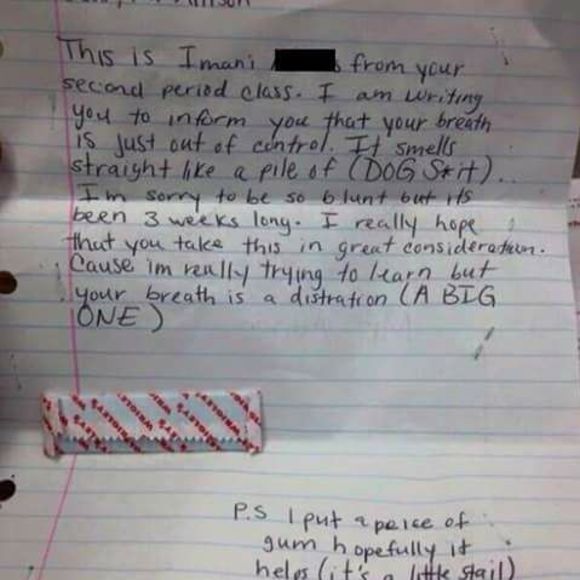 This is Imani from your
second period class. I am writing
you to inform you that your breath
is just out of control. It smells
straight like a pile of (DOG S*it)..
Im sorry to be so blunt but its
been 3 weeks long. I really hope
that you take this in great consideration.
Cause im really trying to learn but
your breath is a distration (A BIG
ONE)
WRIGLEY'S
P.S I put a peice of
gum hopefully it
helps (it's a little stail)